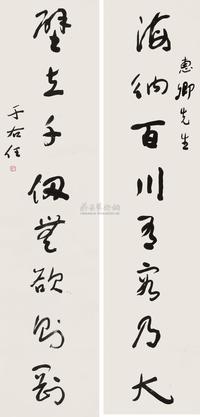 海納百川有容乃大
惠卿先生
壁立千仞無欲則剛
于右任